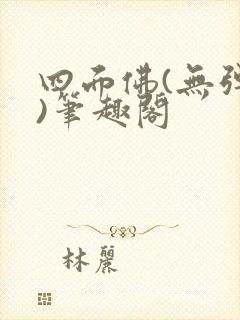 四面佛(無弹
)筆趣閣
林麗